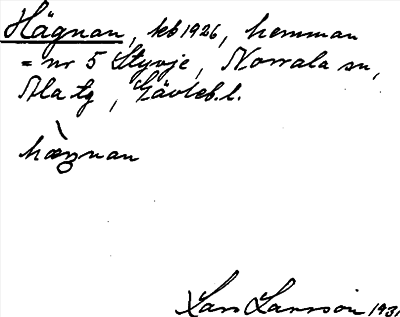 Hägnan, kb 1926, hemman
= nr 5 Styvje, Norrala sn,
Ala tg, Gävleb. l.
hæŋnan
Lars Larsson 1931